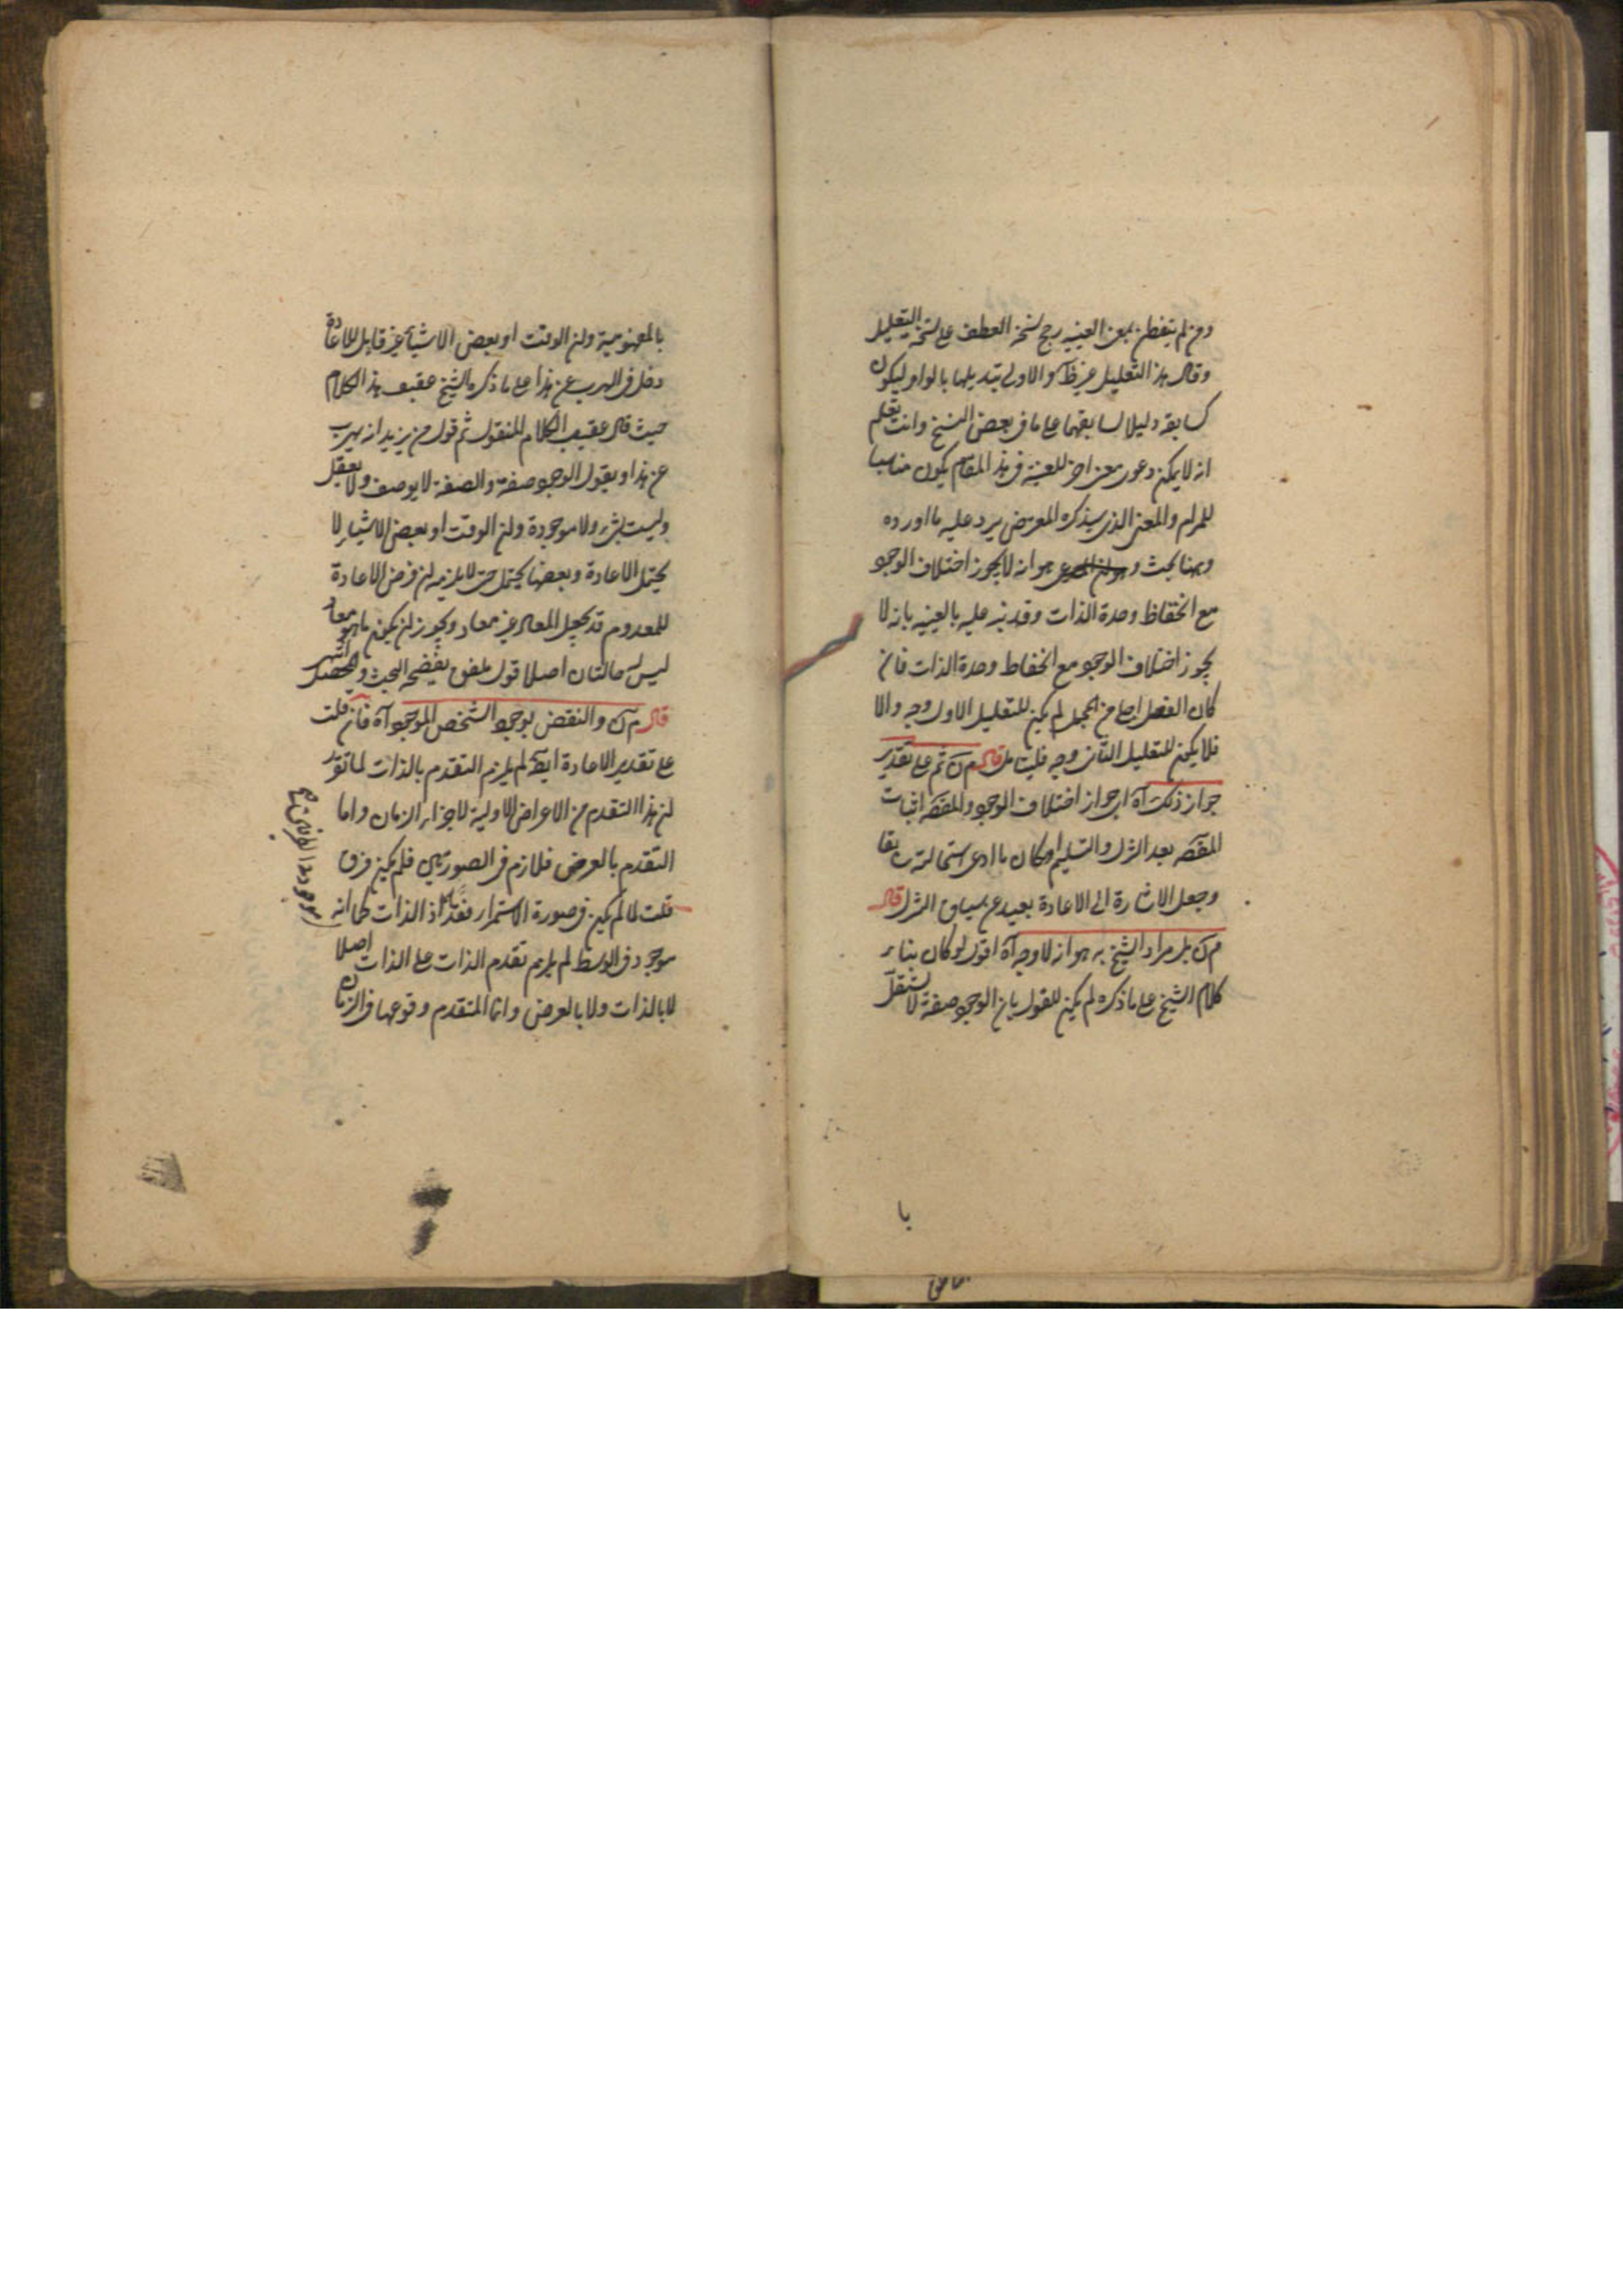 ومن لم يتفطن بمعنى العينيه رجح نسخة العطف على نسخة التعليل
وقال هذا التعليل غير ظ آه والاولى تبديلها بالواو ليكون
كسابقه دليلا لسابقهما على ما في بعض النسخ وانت تعلم
انه لا يمكن دعوى معنى اخر للعينية في هذا المقام يكون مناسبا
للمرام والمعنى الذى سيذكره المعترض يرد عليه ما اورده
وههنا بحث و هو انه لا يجوز اختلاف الوجود
مع انحفاظ وحدة الذات وقد نبه عليه بالعينيه بانه لا
يجوز اختلاف الوجود مع انحفاظ وحدة الذات فان
كان الفصل ابط من الجعل لم يكن للتعليل الاول وجه والا
فلا يكون للتعليل الثانى وجه فليتامل قال م ن ثم على تقدير
جواز ذلك آه اى جواز اختلاف الوجود والمقصد اثبات
المقصد بعد التنزل والتسليم امكان ما ادعى استحالته سابقا
وجعل الاشارة الى الاعادة بعيد عن سياق التنزل قال
م ن بل مراد الشيخ به هو انه لا وجه آه اقول لو كان بناء
كلام الشيخ على ما ذكره لم يكن للقول بان الوجود صفة لا تستقل
با
بالمفهومية ولان الوقت او بعض الاشياء غير قابل للاعادة
دخل في الهرب عن هذا على ما ذكره الشيخ عقيب هذا الكلام
حيث قال عقيب الكلام المنقول ثم قول من يريد ان يهرب
عن هذا ويقول الوجود صفة والصفة لا يوصف ولا يعقل
وليست بشئ ولا موجودة ولان الوقت او بعض الاشياء لا
يحتمل الاعادة وبعضها يحتمل حتى لا يلزمه ان فرض الاعادة
للمعدوم قد يجعل المعاد غير معاد ويجوز ان يكون ما هو معاد
ليس له حالتان اصلا قول ملفق يفضحه البحث والتحصيل انتهى
قال م ن والنقض بوجود الشخص الموجود آه فان قلت
على تقدير الاعادة ايضا لم يلزم التقدم بالذات لما تقرر
ان هذا التقدم من الاعراض الاولية لاجزاء الزمان واما
التقدم بالعرض فلازم في الصورتين فلم يكن فرق
قلت لما لم يكن في صورة الاستمرار فقد اذ الذات كما انه
موجود في الوسط لم يلزم تقدم الذات على الذات اصلا
لا بالذات ولا بالعرض وانما المتقدم وقوعها في الزمان